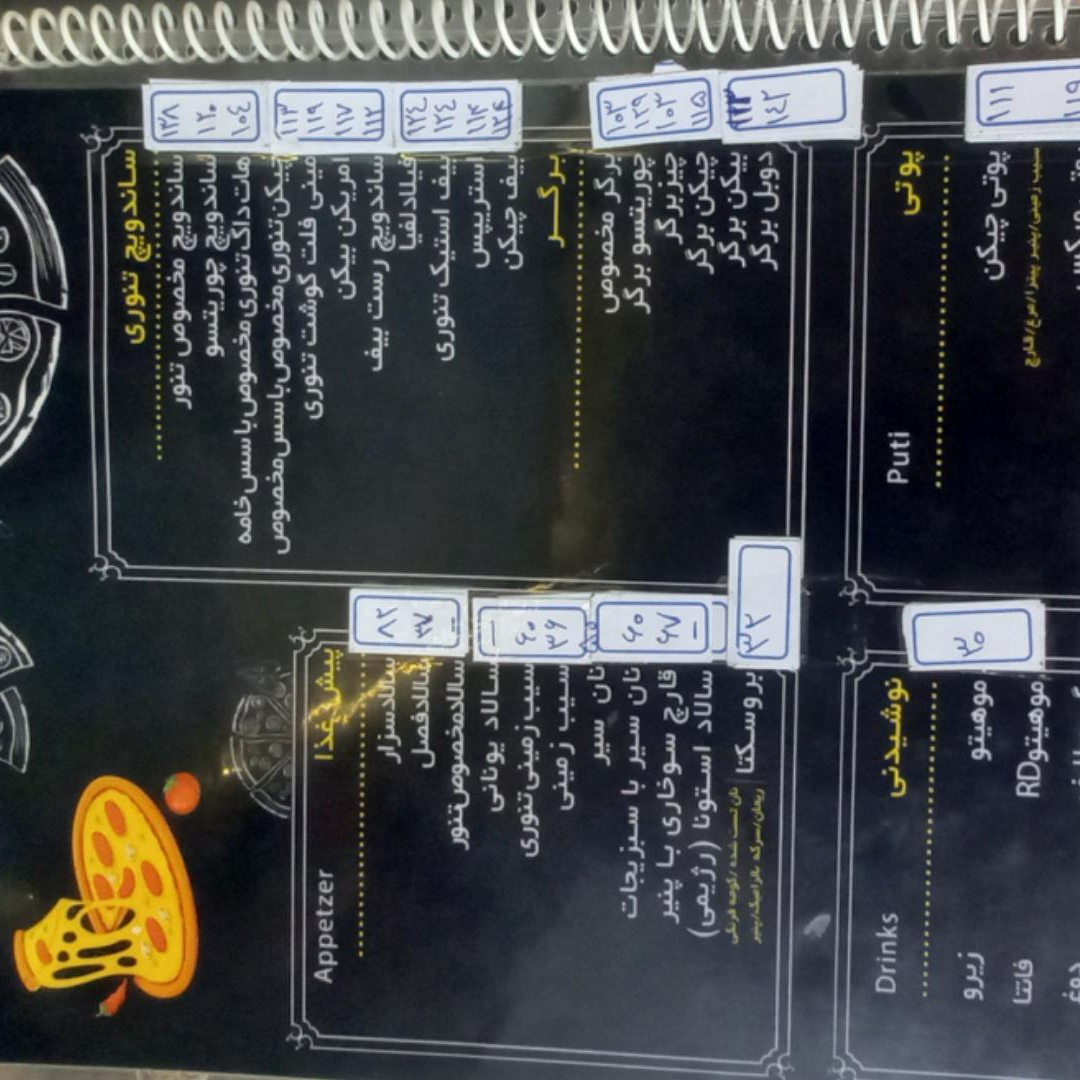 ساندویچ تنوری
ساندویچ مخصوص تنور
ساندویچ چوریتسو
هات داگ تنوری مخصوص با سس خامه
چیکن تنوری مخصوص با سس مخصوص
مینی فلت گوشت تنوری
امریکن بیکن
ساندویچ رست بیف
فیلادلفیا
بیف استیک تنوری
استریپس
بیف چیکن
۱۳۸
۱۲۰
۱۰۴
۱۱۳
۱۱۹
۱۱۷
۱۱۲
۱۲۴
۱۲۴
۱۱۴
برگر
برگر مخصوص
چوریتسو برگر
چیزبرگر
چیکن برگر
بیکن برگر
دوبل برگر
۱۰۳
۱۲۹
۱۰۳
۱۱۵
۱۴۲
پوتی
Puti
پوتی چیکن
سیب زمینی/پنیر پیتزا/مرغ/قارچ
۱۱۱
۱۱۹
پیش غذا
Appetzer
سالادسزار
سالادفصل
سالادمخصوص تنور
سالاد یونانی
سیب زمینی تنوری
سیب زمینی
نان سیر
نان سیر با سبزیجات
قارچ سوخاری با پنیر
سالاد استونا (رژیمی)
بروسکتا
نان تست شده /گوجه فرنگی
ریحان/سرکه بالزامیک/پنیر
۸۲
۳۷
–
–
۶۰
۳۶
۶۰
۶۷
–
۳۲
نوشیدنی
Drinks
موهیتو
زیرو
موهیتوRD
فانتا
دوغ
۳۵